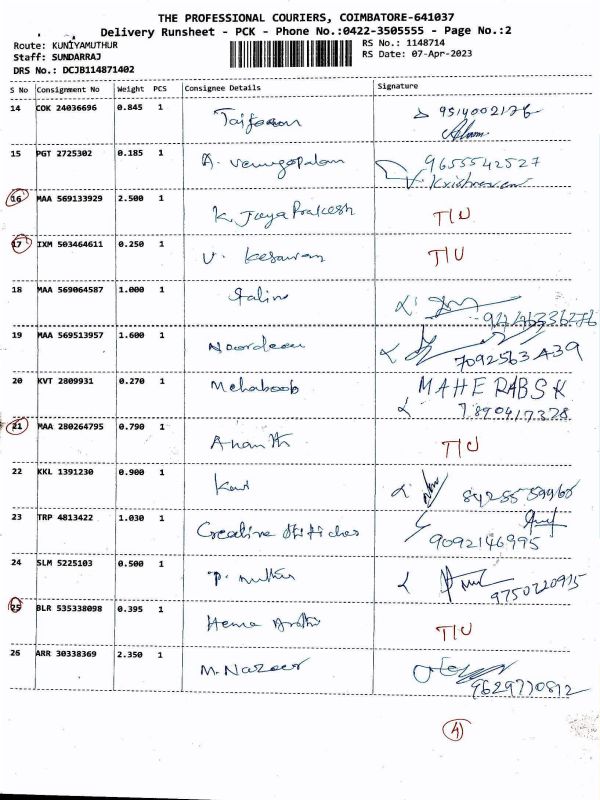 THE PROFESSIONAL COURIERS, COIMBATORE-641037
Delivery Runsheet - PCK - Phone No.:0422-3505555 - Page No.:2
Route: KUNIYAMUTHUR
RS No.: 1148714
Staff: SUNDARRAJ
RS Date: 07-Apr-2023
DRS No.: DCJB114871402
S No Consignment No Weight PCS Consignee Details Signature
14 COK 24036696 0.845 1 9514002176
15 PGT 2725302 0.185 1 A. Venugopalan 9655542527
V. Krishnaven
16 MAA 569133929 2.500 1 K. Jaya Prakesh T/U
17 IXM 503464611 0.250 1 V. Kesavan T/U
18 MAA 569064587 1.000 1 Stalin
19 MAA 569513957 1.600 1 Noordeen 7092563439
20 KVT 2809931 0.270 1 Mehaboob MAHERABSK
7890417328
21 MAA 280264795 0.790 1 Ananth T/U
22 KKL 1391230 0.900 1
23 TRP 4813422 1.030 1 Creative Stitches 9092146995
24 SLM 5225103 0.500 1 P. Muthu 9750220915
25 BLR 535338098 0.395 1 Hema T/U
26 ARR 30338369 2.350 1 M. Nazeer 9629770812
4